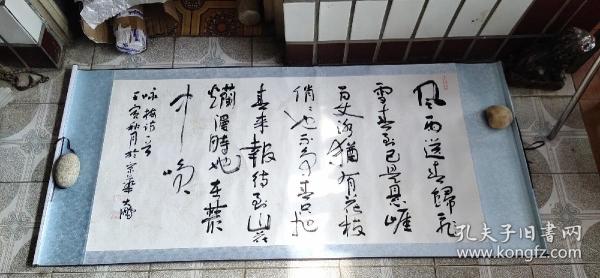 风雨送春归飞
雪春到已是悬崖
百丈冰犹有花枝
俏俏也不争春只把
春来报待到山花
烂漫时她在丛
中笑
咏梅诗一首
孔夫子旧书网
www.kongfz.com